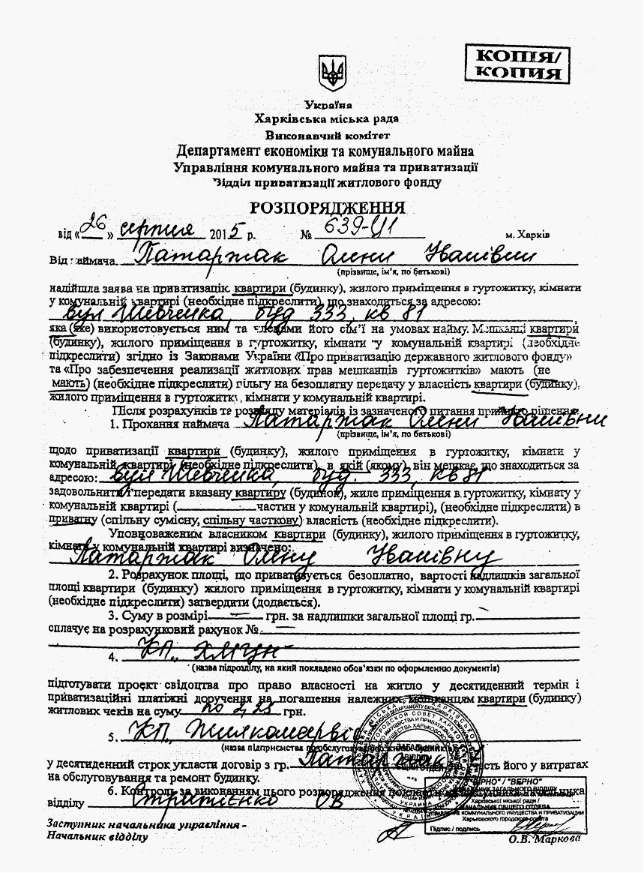 КОПІЯ/
КОПИЯ
Україна
Харківська міська рада
Виконавчий комітет
Департамент економіки та комунального майна
Управління комунального майна та приватизації
Відділ приватизації житлового фонду
РОЗПОРЯДЖЕННЯ
від «26» серпня 2015 р. № 639-Ц1 м. Харків
Від наймача Патаржак Олени Іванівни
(прізвище, ім’я, по батькові)
надійшла заява на приватизацію квартири (будинку), жилого приміщення в гуртожитку, кімнати
у комунальній квартирі (необхідне підкреслити), що знаходиться за адресою:
вул Шевченка, буд 333, кв 81
яка (яке) використовується ним та членами його сім’ї на умовах найму. Мешканці квартири
(будинку), жилого приміщення в гуртожитку, кімнати у комунальній квартирі (необхідне
підкреслити) згідно із Законами України «Про приватизацію державного житлового фонду»
та «Про забезпечення реалізації житлових прав мешканців гуртожитків» мають (не
мають) (необхідне підкреслити) пільгу на безоплатну передачу у власність квартири (будинку),
жилого приміщення в гуртожитку, кімнати у комунальній квартирі.
Після розрахунків та розгляду матеріалів із зазначеного питання прийнято рішення:
1. Прохання наймача Патаржак Олени Іванівни
(прізвище, ім’я, по батькові)
щодо приватизації квартири (будинку), жилого приміщення в гуртожитку, кімнати у
комунальній квартирі (необхідне підкреслити), в якій (якому) він мешкає, що знаходиться за
адресою: вул Шевченка, буд. 333, кв 81
задовольнити і передати вказану квартиру (будинок), жиле приміщення в гуртожитку, кімнату у
комунальній квартирі (____ частин у комунальній квартирі), (необхідне підкреслити) в
приватну (спільну сумісну, спільну часткову) власність (необхідне підкреслити).
Уповноваженим власником квартири (будинку), жилого приміщення в гуртожитку,
кімнати у комунальній квартирі визначено:
Патаржак Олену Іванівну
2. Розрахунок площі, що приватизується безоплатно, вартості надлишків загальної
площі квартири (будинку) жилого приміщення в гуртожитку, кімнати у комунальній квартирі
(необхідне підкреслити) затвердити (додається).
3. Суму в розмірі ____ грн. за надлишки загальної площі гр.
сплачує на розрахунковий рахунок №
4. КП
(назва підрозділу, на який покладено обов’язки по оформленню документів)
підготувати проект свідоцтва про право власності на житло у десятиденний термін і
приватизаційні платіжні доручення на погашення належних мешканцям квартири (будинку)
житлових чеків на суму грн.
5. КП
(назва підприємства по обслуговуванню
у десятиденний строк укласти договір з гр. Патаржак участь його у витратах
на обслуговування та ремонт будинку.
6. Контроль за виконанням цього розпорядження покласти начальника
відділу ОВ
Заступник начальника управління -
Начальник відділу
"ВІРНО" / "ВЕРНО"
Харківської міської ради /
Харьковского городского совета
Підпис / подпись
О.В. Маркова